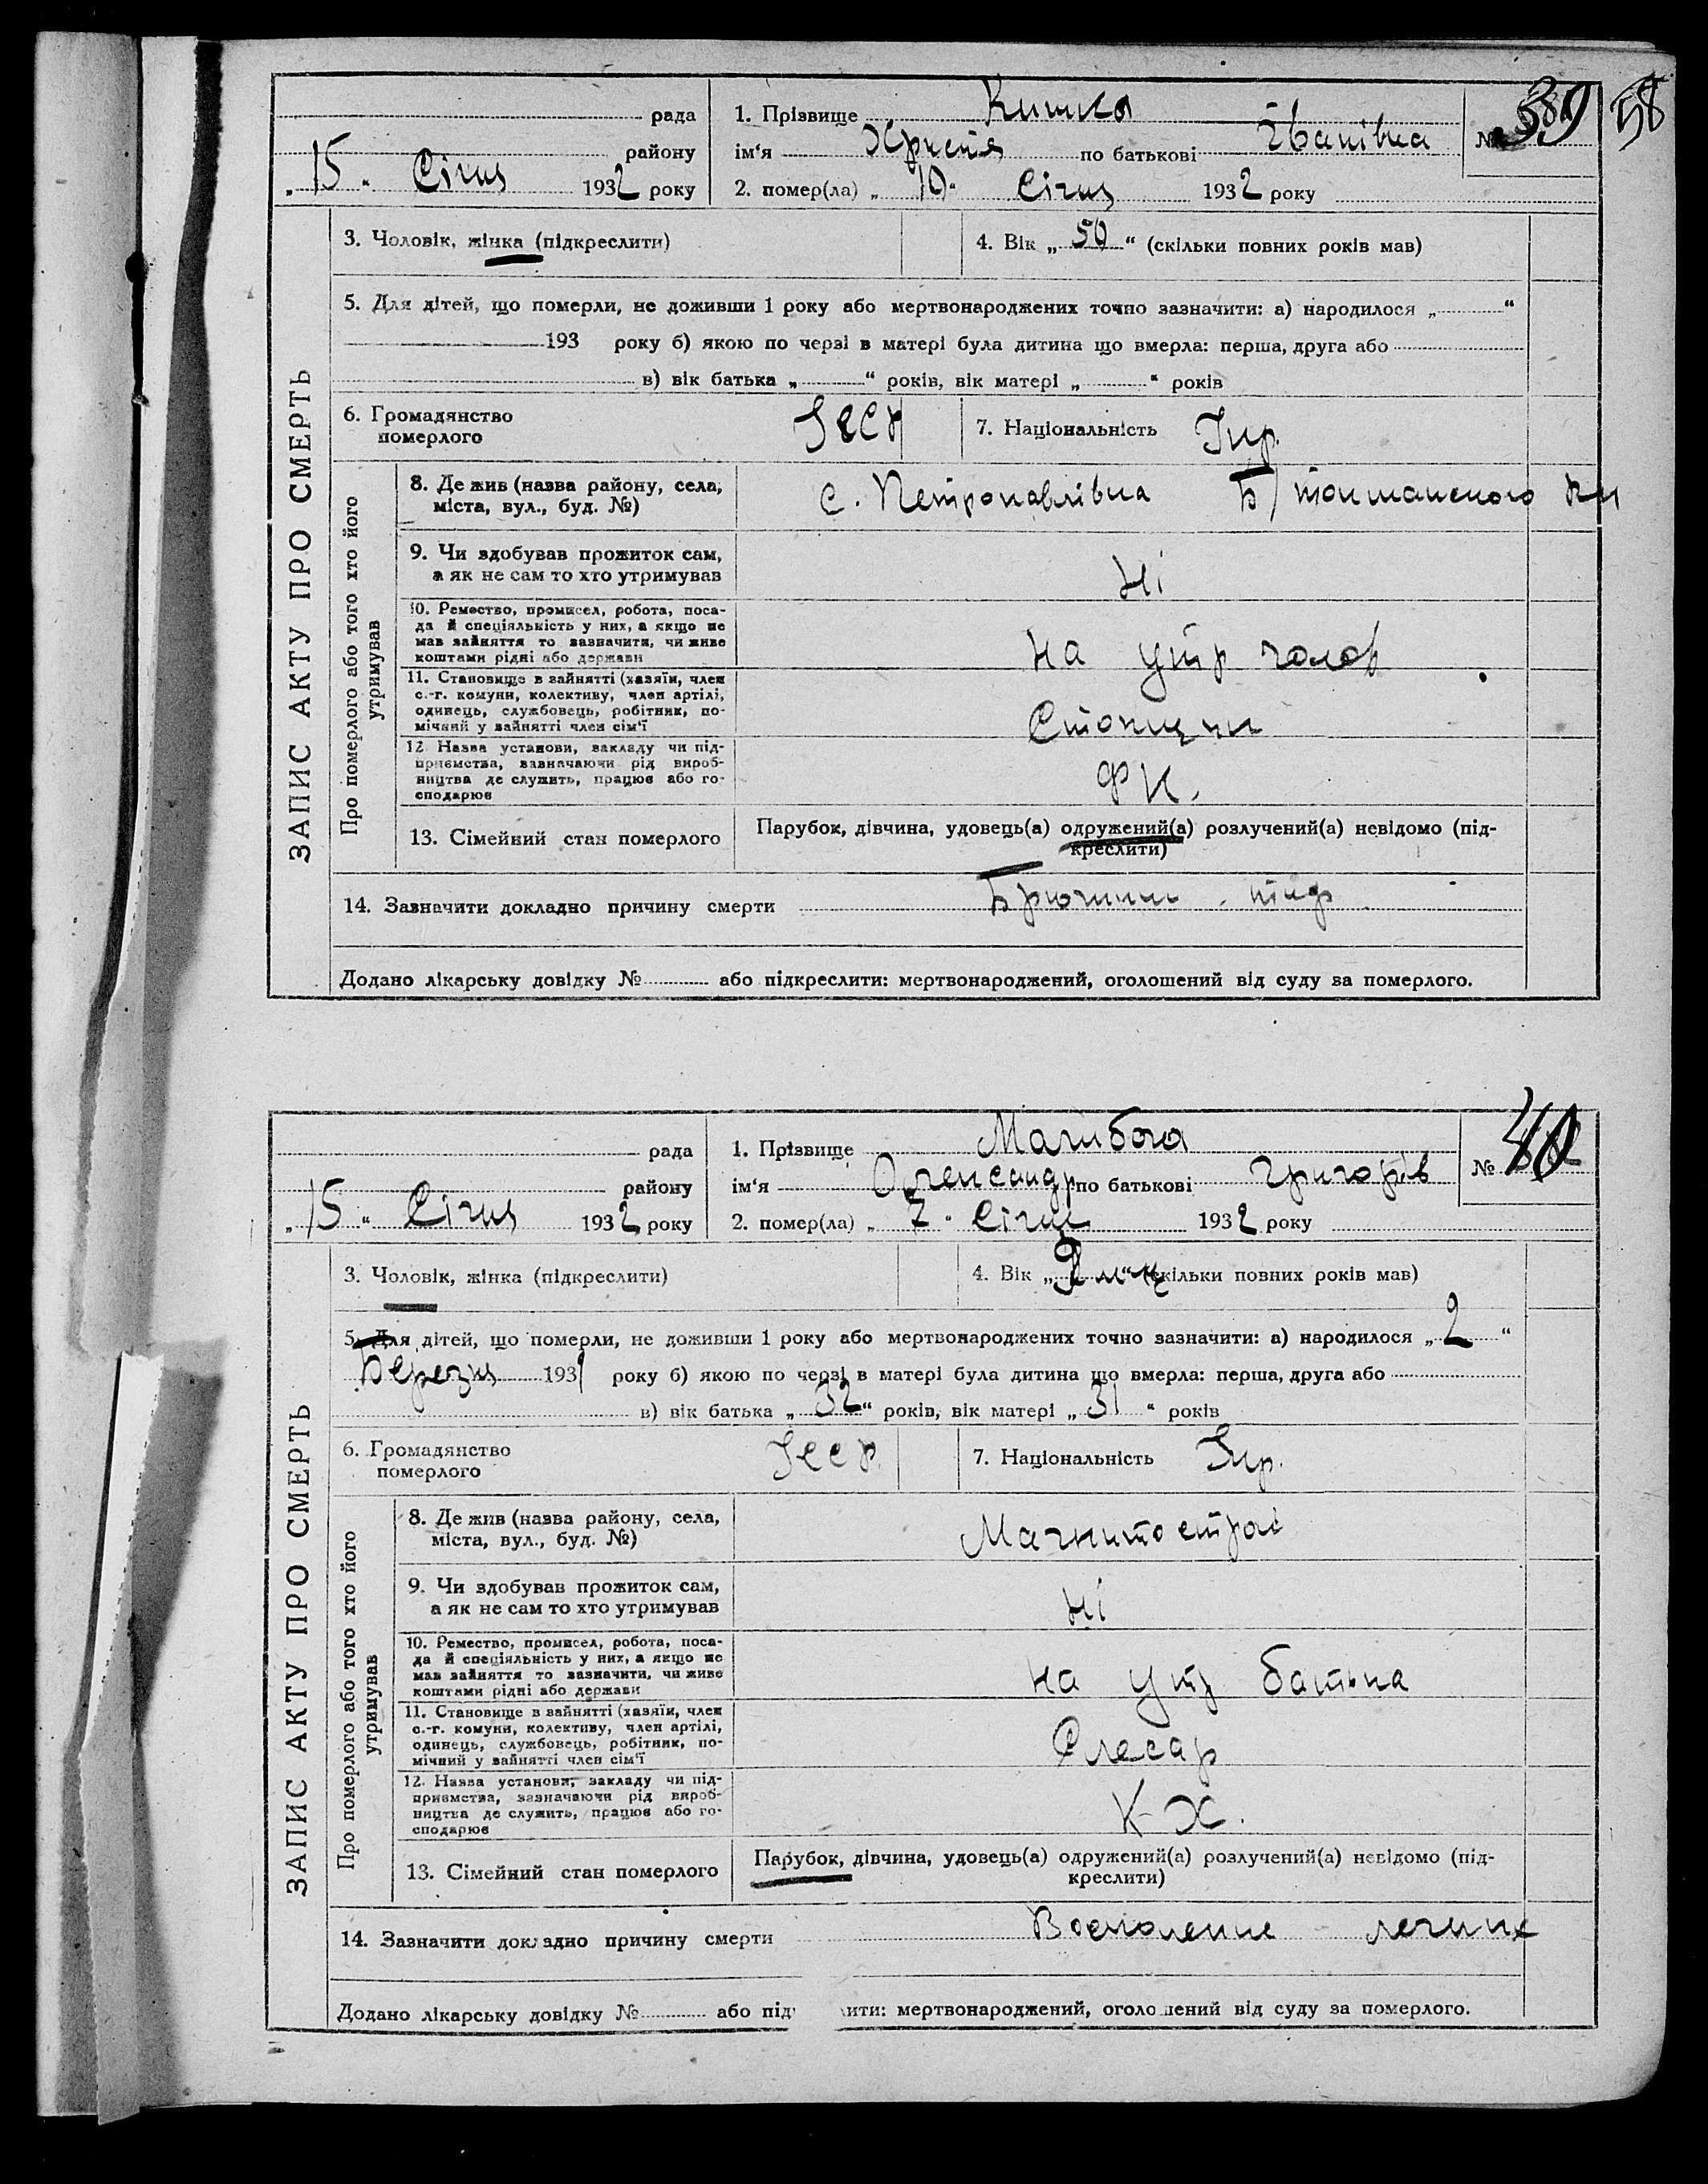 58
рада
району
„ 15 “ Січня 1932 року
1. Прізвище Кишка
ім‘я Христя по батькові Іванівна
2. помер(ла) „ 10 “ Січня 1932 року
№ 39
ЗАПИС АКТУ ПРО СМЕРТЬ
3. Чоловік, жінка (підкреслити)
4. Вік „ 50 “ (скільки повних років мав)
5. Для дітей, що померли, не доживши 1 року або мертвонароджених точно зазначити: а) народилося „ “
193 року б) якою по черзі в матері була дитина що вмерла: перша, друга або
в) вік батька „ “ років, вік матері „ “ років
6. Громадянство
померлого
УССР
7. Національність Укр.
Про померлого або того хто його
утримував
8. Де жив (назва району, села,
міста, вул., буд. №)
с. Петропавлівка
9. Чи здобував прожиток сам,
а як не сам то хто утримував
Ні
10. Ремество, промисел, робота, поса-
да й спеціяльність у них, а якщо не
мав зайняття то зазначити, чи живе
коштами рідні або держави
на утр чолов
11. Становище в зайнятті (хазяїн, член
с.-г. комуни, колективу, член артілі,
одинець, службовець, робітник, по-
мічний у зайнятті член сім‘ї
12 Назва установи, закладу чи під-
приємства, зазначаючи рід вироб-
ництва де служить, працює або го-
сподарює
13. Сімейний стан померлого
Парубок, дівчина, удовець(а) одружений(а) розлучений(а) невідомо (під-
креслити)
14. Зазначити докладно причину смерти Брюшни тиф
Додано лікарську довідку № або підкреслити: мертвонароджений, оголошений від суду за померлого.
рада
району
„ 15 “ Січня 1932 року
1. Прізвище
ім‘я Олександр по батькові Григорів
2. помер(ла) „ 7 “ Січня 1932 року
№ 40
ЗАПИС АКТУ ПРО СМЕРТЬ
3. Чоловік, жінка (підкреслити)
4. Вік „ “ (скільки повних років мав)
5. Для дітей, що померли, не доживши 1 року або мертвонароджених точно зазначити: а) народилося „ 2 “
Березня 1931 року б) якою по черзі в матері була дитина що вмерла: перша, друга або
в) вік батька „ 32 “ років, вік матері „ 31 “ років
6. Громадянство
померлого
УССР
7. Національність Укр.
Про померлого або того хто його
утримував
8. Де жив (назва району, села,
міста, вул., буд. №)
Магнитострой
9. Чи здобував прожиток сам,
а як не сам то хто утримував
Ні
10. Ремество, промисел, робота, поса-
да й спеціяльність у них, а якщо не
мав зайняття то зазначити, чи живе
коштами рідні або держави
на утр батька
11. Становище в зайнятті (хазяїн, член
с.-г. комуни, колективу, член артілі,
одинець, службовець, робітник, по-
мічний у зайнятті член сім‘ї
Слесар
12. Назва установи, закладу чи під-
приємства, зазначаючи рід вироб-
ництва де служить, працює або го-
сподарює
К-Х.
13. Сімейний стан померлого
Парубок, дівчина, удовець(а) одружений(а) розлучений(а) невідомо (під-
креслити)
14. Зазначити докладно причину смерти Восполение легких
Додано лікарську довідку № або під ити: мертвонароджений, оголо ений від суду за померлого.